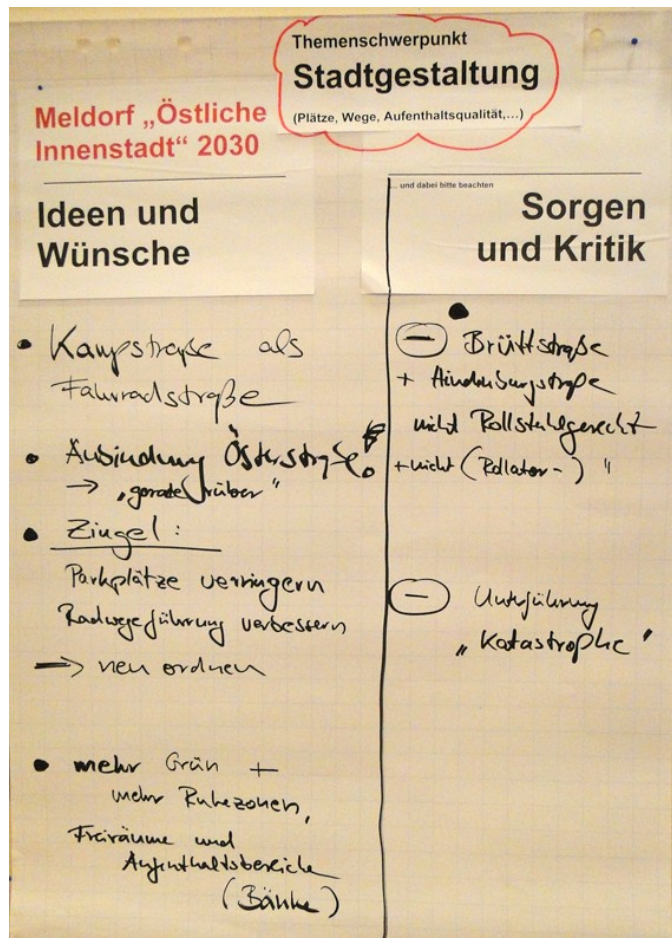 Themenschwerpunkt
Stadtgestaltung
(Plätze, Wege, Aufenthaltsqualität,...)
Meldorf „Östliche
Innenstadt“ 2030
Ideen und
Wünsche
... und dabei bitte beachten
Sorgen
und Kritik
• Kampstraße als
Fahrradstraße
• Anbindung Österstraße!
→ „gerade rüber“
• Zingel:
Parkplätze verringern
Radwegeführung verbessern
→ neu ordnen
• mehr Grün +
mehr Ruhezonen,
Freiräume und
Aufenthaltsbereiche
(Bänke)
•
− Brüttstraße
+ Hindenburgstraße
nicht Rollstuhlgerecht
+ nicht (Rollator-) "
− Unterführung
„Katastrophe“